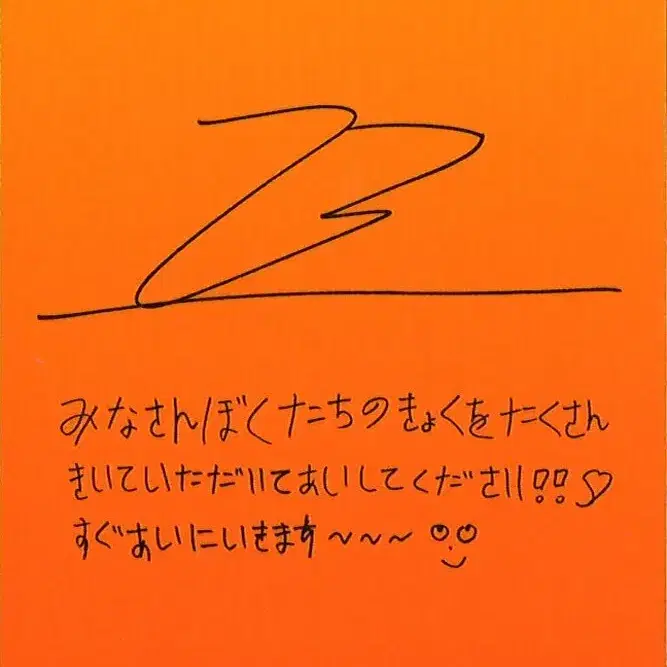 みなさんぼくたちのきょくをたくさん
きいていただいてあいしてください!!♡
すぐあいにいきます~~~